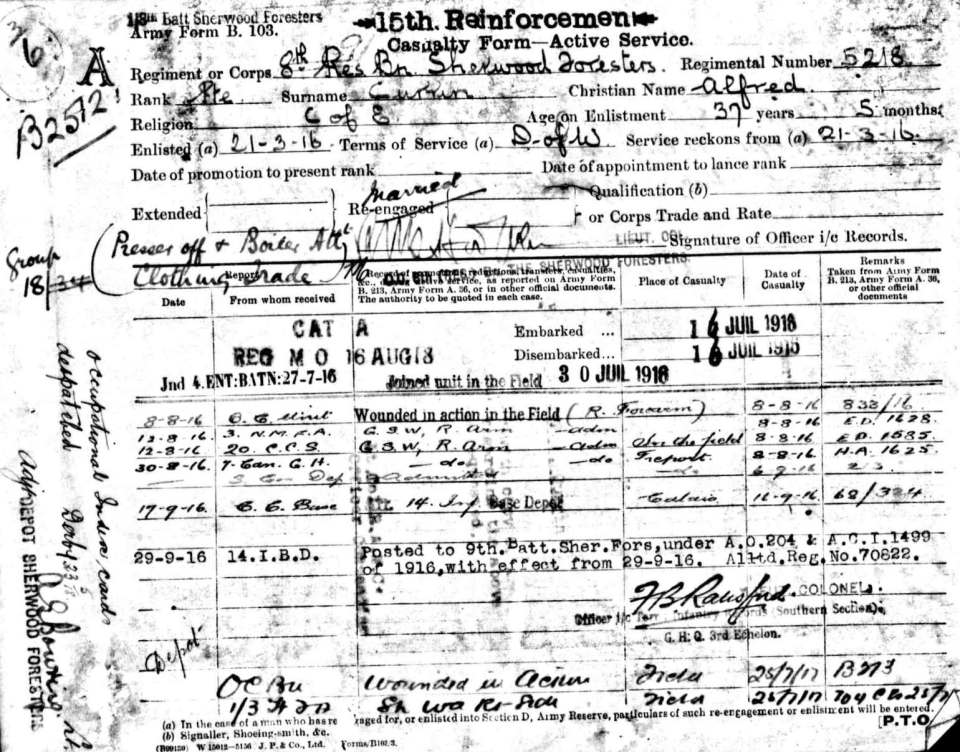 1/8th Batt Sherwood Foresters
Army Form B. 103.
15th. Reinforcemen
Casualty Form—Active Service.
36
A
B2572
Regiment or Corps 8th Res Bn. Sherwood Foresters. Regimental Number 5218
Rank Pte Surname Christian Name Alfred.
Religion C of E Age on Enlistment 37 years 5 months
Enlisted (a) 21-3-16 Terms of Service (a) D-of-W Service reckons from (a) 21-3-16.
Date of promotion to present rank Date of appointment to lance rank
Married Qualification (b)
Extended Re-engaged
r or Corps Trade and Rate
Presser off & Boiler Att
LIEUT. COL. Signature of Officer i/c Records.
Group 18/34
Clothing Trade
THE SHERWOOD FORESTERS.
Report
Date From whom received
Record of promotions, reductions, transfers, casualties, &c., during active service, as reported on Army Form B. 213, Army Form A. 36, or in other official documents. The authority to be quoted in each case.
Place of Casualty
Date of Casualty
Remarks Taken from Army Form B. 213, Army Form A. 36, or other official documents
CAT A Embarked ... 16 JUIL 1916
REG M O 16 AUG 18 Disembarked... 16 JUIL 1916
Jnd 4.ENT:BATN:27-7-16 Joined unit in the Field 30 JUIL 1916
8-8-16 O. C. Unit Wounded in action in the Field (R. Forearm) 8-8-16 833/16
12-8-16. 3. N.M.F.A. G.S.W, R. Arm adm 8-8-16 E.D. 1628.
12-8-16. 20. C.C.S. G.S.W, R. Arm Adm In the field 8-8-16 E.D. 1585
30-8-16. 7 Can. G.H. do do Treport 8-8-16 H.A. 1625
17-9-16. Base 14. Inf Base Depot Calais 16-9-16 68/324
29-9-16 14.I.B.D. Posted to 9th.Batt.Sher.Fors,under A.O.204 & A.C.I.1499
of 1916,with effect from 29-9-16. Alltd.Reg.No.70822.
COLONEL.
Officer i/c Terr. Infantry Records Southern Section,
G. H. Q. 3rd Echelon.
Depot
OC Bn Wounded in Action Field 25/7/17 B213
1/3 Field 25/7/17
occupational Index card
despatched Derby
ADJ DEPOT SHERWOOD FORESTERS
(a) In the case of a man who has re gaged for, or enlisted into Section D, Army Reserve, particulars of such re-engagement or enlistment will be entered.
(b) Signaller, Shoeing-smith, &c.
[P.T.O.
(B09130) W 15012—5156 J. P. & Co., Ltd. Forms/B103/3.